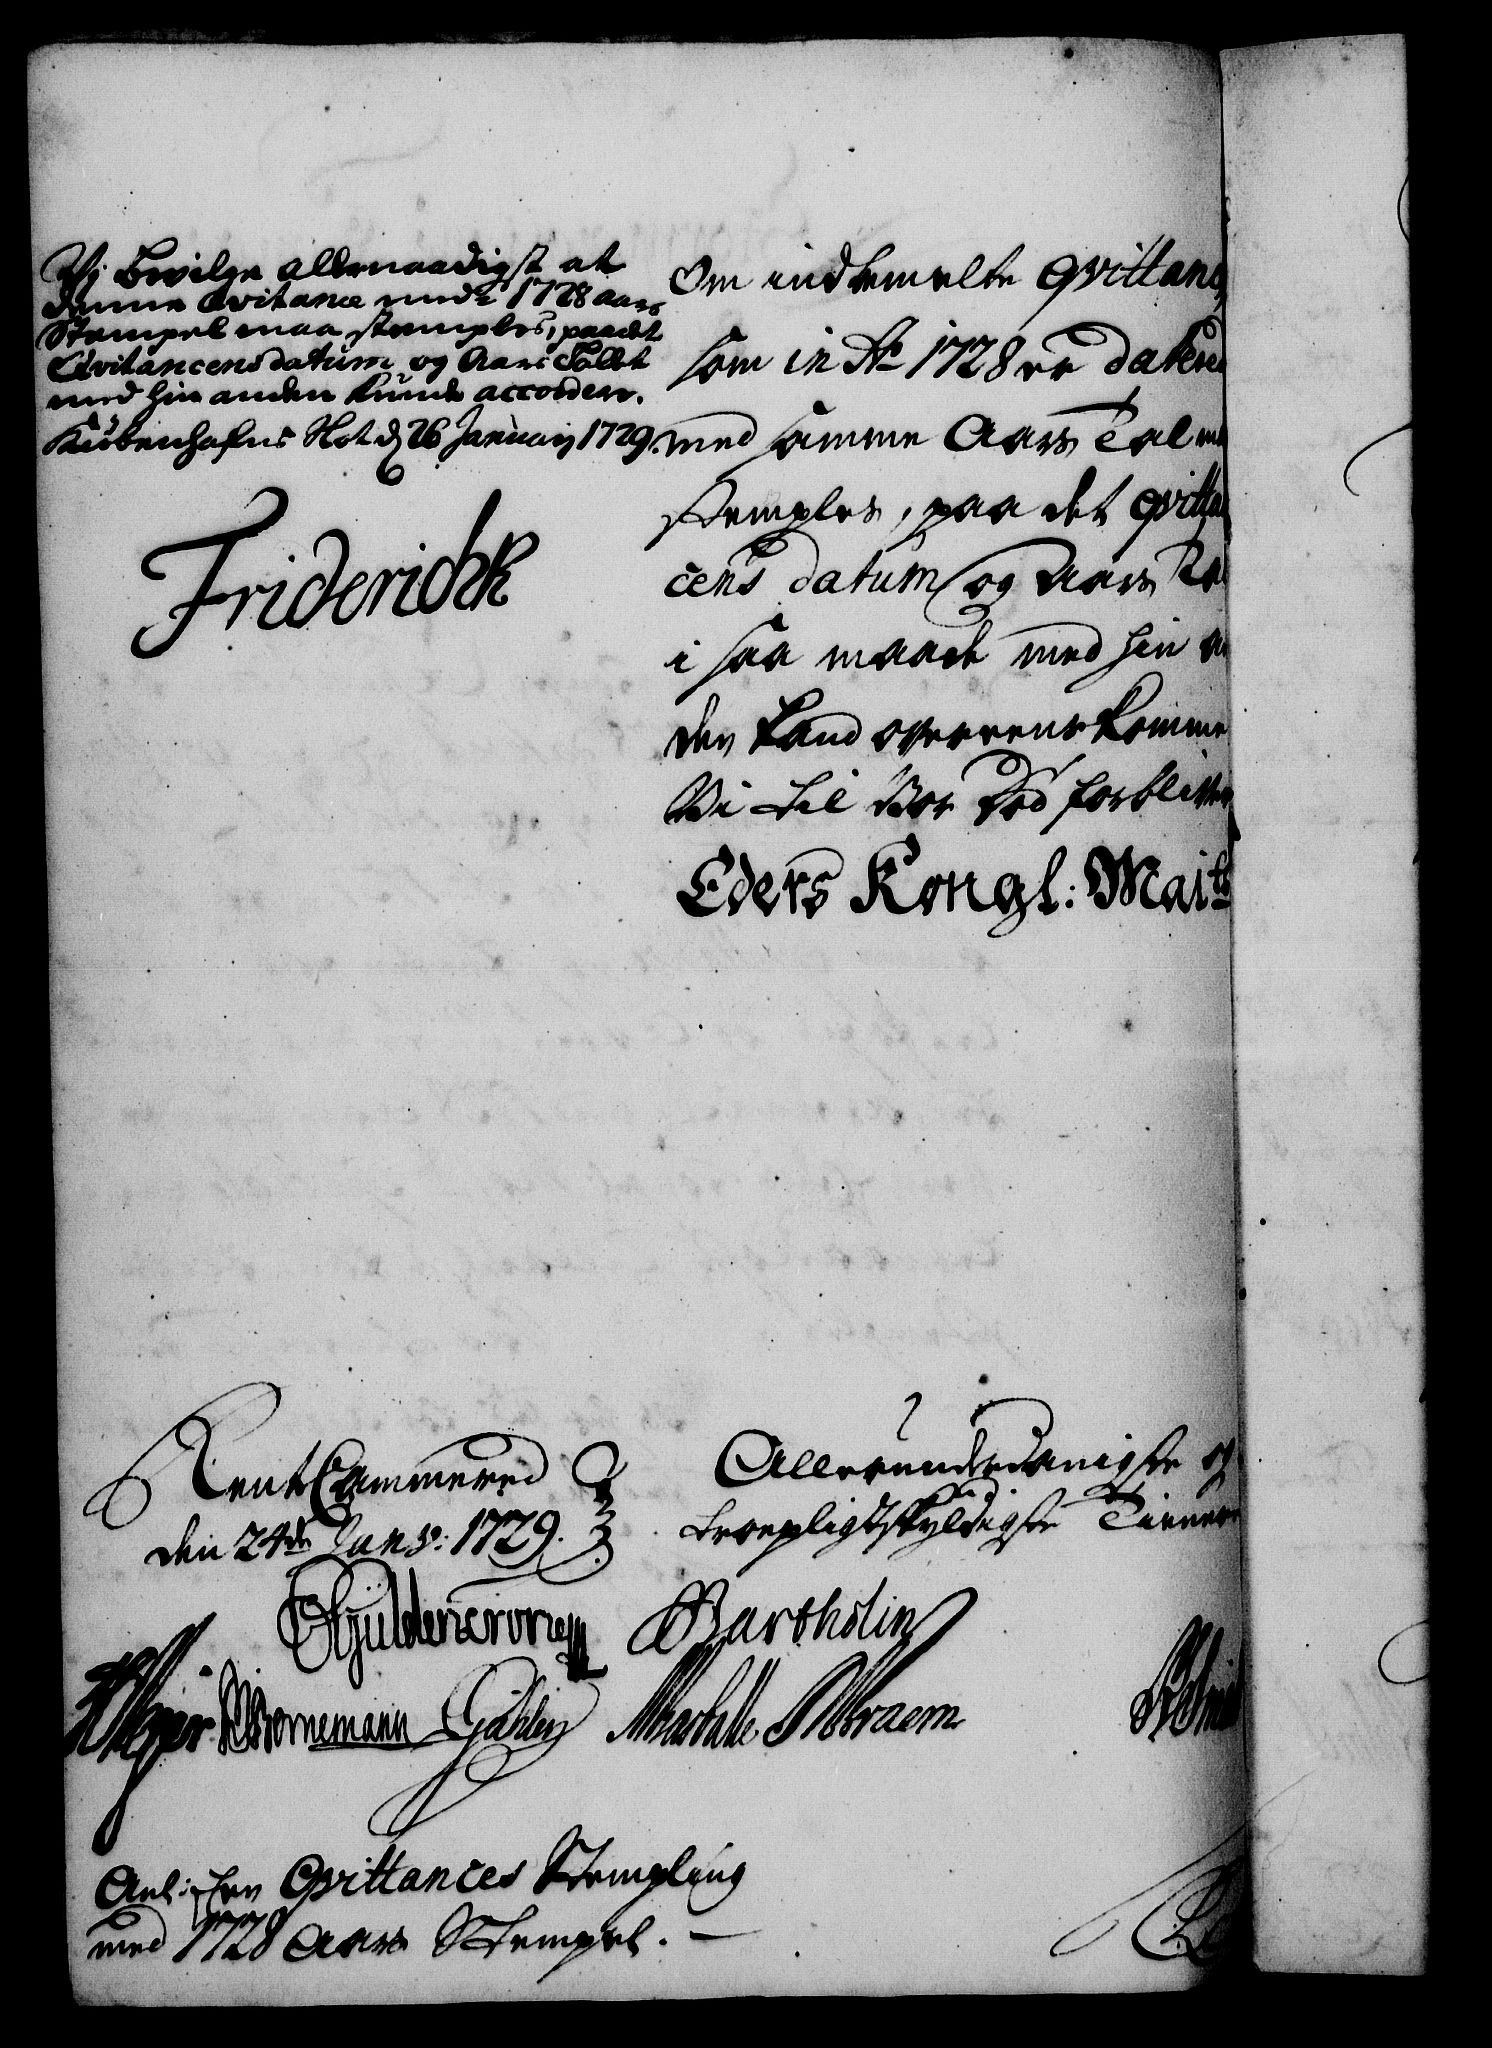 Vi bevilge allernaadigst at
denne Qvitance med 1728 aars
Stempel maa stemples, paa det
Qvitancens datum og Aars Tallet
med hin anden kunde accordere.
Kiøbenhafns Slot d 26 January 1729.
Friderich R
Om indbemelte Qvittance,
som in Ao 1728 er dateret
med samme Aars Tal maa
stemples, paa det Qvittan
cens datum og Aars Tal
i saa maade med hin an
den kand overeens komme
Vi til Vor Død forblifver
Eders Kongl: Maits
RentCammeret
den 24de Janv: 1729.
Allerunderdanigste og
troepligtskyldigste Tienere
Güldencrone
Bartholin
Meyer Bornemann
Braem
Anl: en Qvittances Stempling
med 1728 Aars Stempel. —